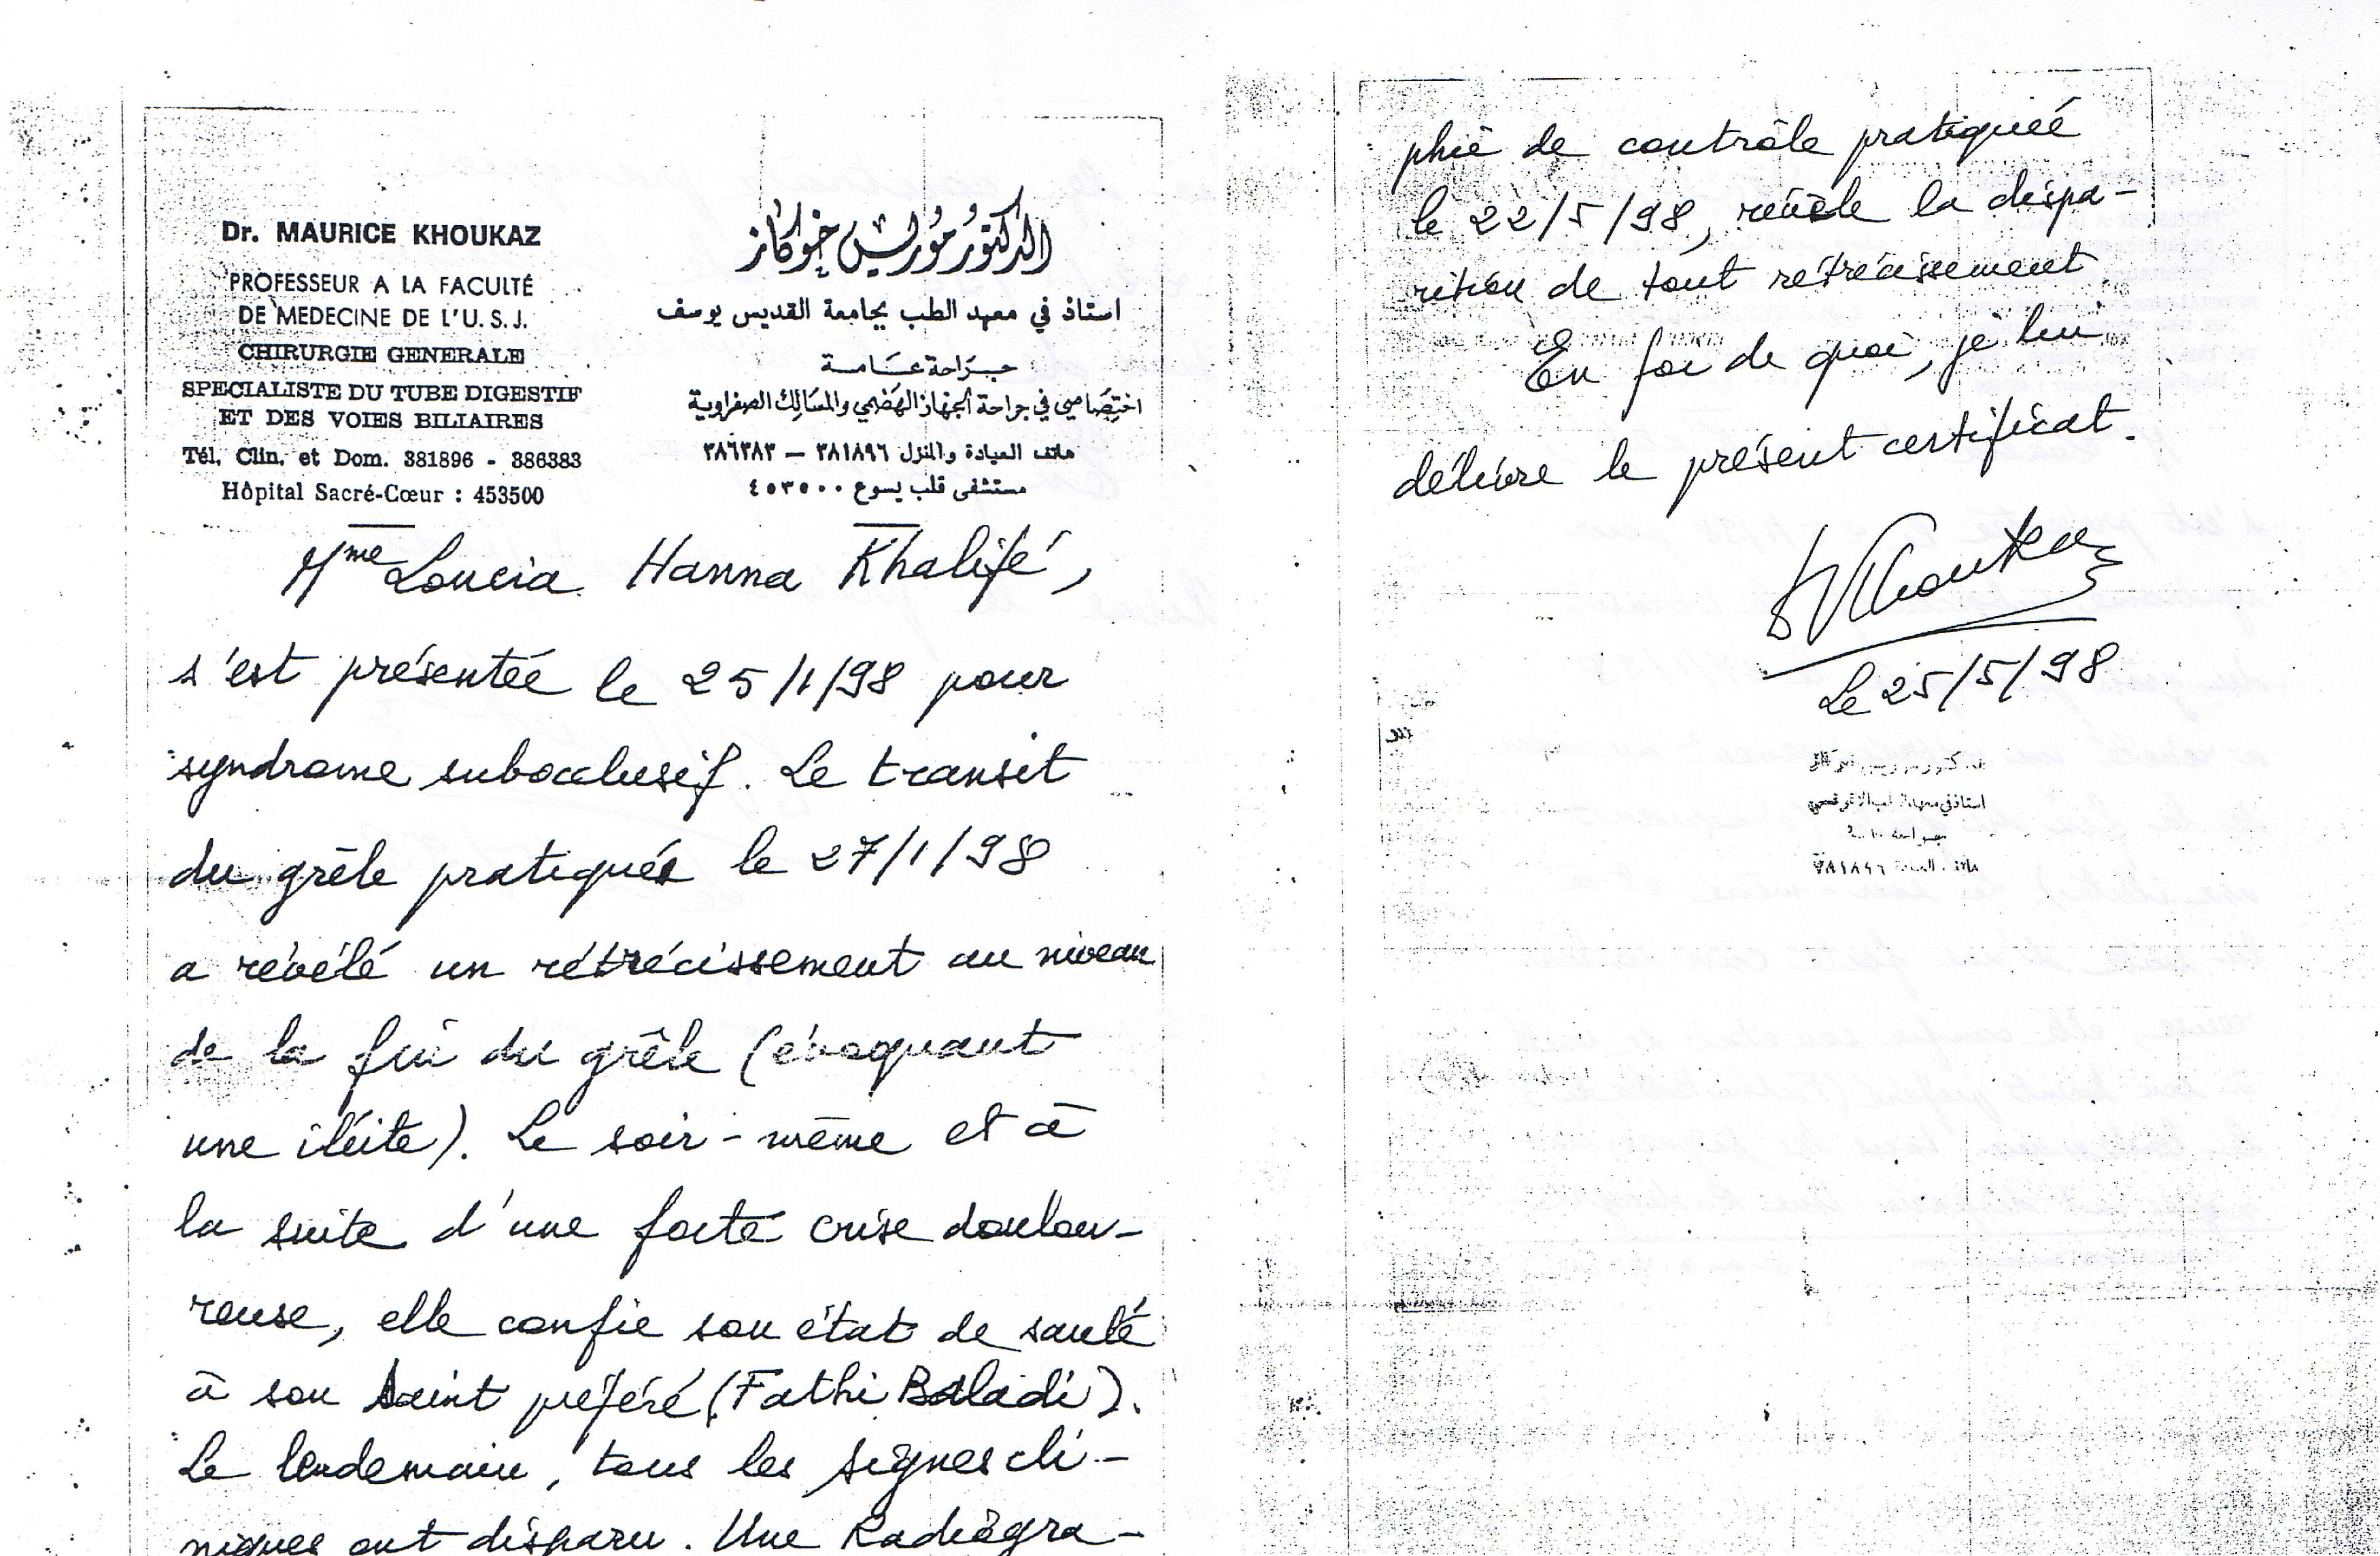 Dr. MAURICE KHOUKAZ
PROFESSEUR A LA FACULTÉ
DE MEDECINE DE L'U.S.J.
CHIRURGIE GENERALE
SPECIALISTE DU TUBE DIGESTIF
ET DES VOIES BILIAIRES
Tél. Clin. et Dom. 381896 - 386383
Hôpital Sacré-Cœur : 453500
الدكتور موريس خوكاز
استاذ في معهد الطب بجامعة القديس يوسف
جراحة عامة
اختصاصي في جراحة الجهاز الهضمي والمسالك الصفراوية
هاتف العيادة والمنزل ٣٨١٨٩٦ – ٣٨٦٣٨٣
مستشفى قلب يسوع ٤٥٣٥٠٠
Mme Loucia Hanna Khalifé,
s'est présentée le 25/1/98 pour
syndrome subocclusif. Le transit
du grêle pratiqué le 27/1/98
a révélé un rétrécissement au niveau
de la fin du grêle (évoquant
une iléite). Le soir-même et à
la suite d'une forte crise doulou-
reuse, elle confie son état de santé
à son saint préféré (Fathi Baladi).
Le lendemain, tous les signes cli-
niques ont disparu. Une Radiogra-
phie de contrôle pratiquée
le 22/5/98, révèle la dispa-
rition de tout rétrécissement
En foi de quoi, je lui
délivre le présent certificat.
Khoukaz
Le 25/5/98